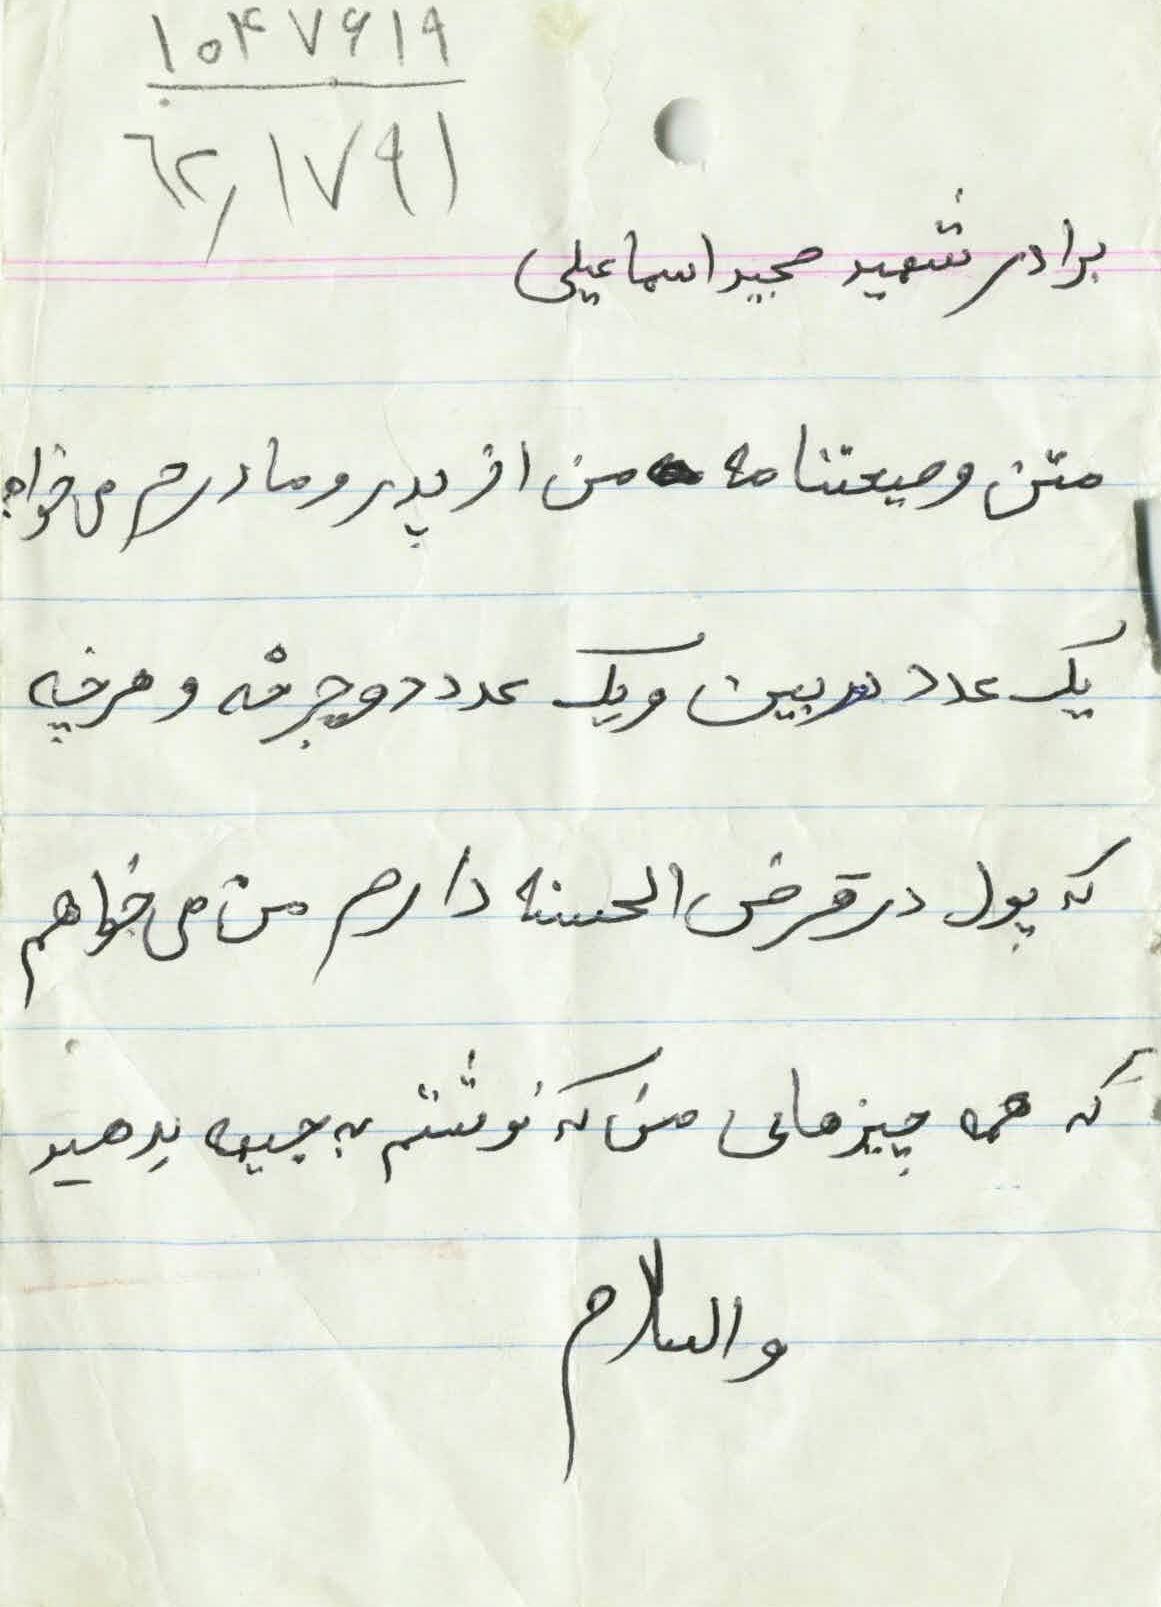 ۱۰۴۷۶۱۹
۶۲٫۱۷۹۱
برادر شهید مجید اسماعیلی
متن وصیعتنامه من از پدر و مادرم می خواهم
یک عدد دوربین و یک عدد دوچرخه و هرچه
که پول در قرض الحسنه دارم من می خواهم
که همه چیزهایی من که نوشتم به جبهه بدهید
والسلام